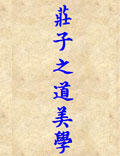 莊子之道美學